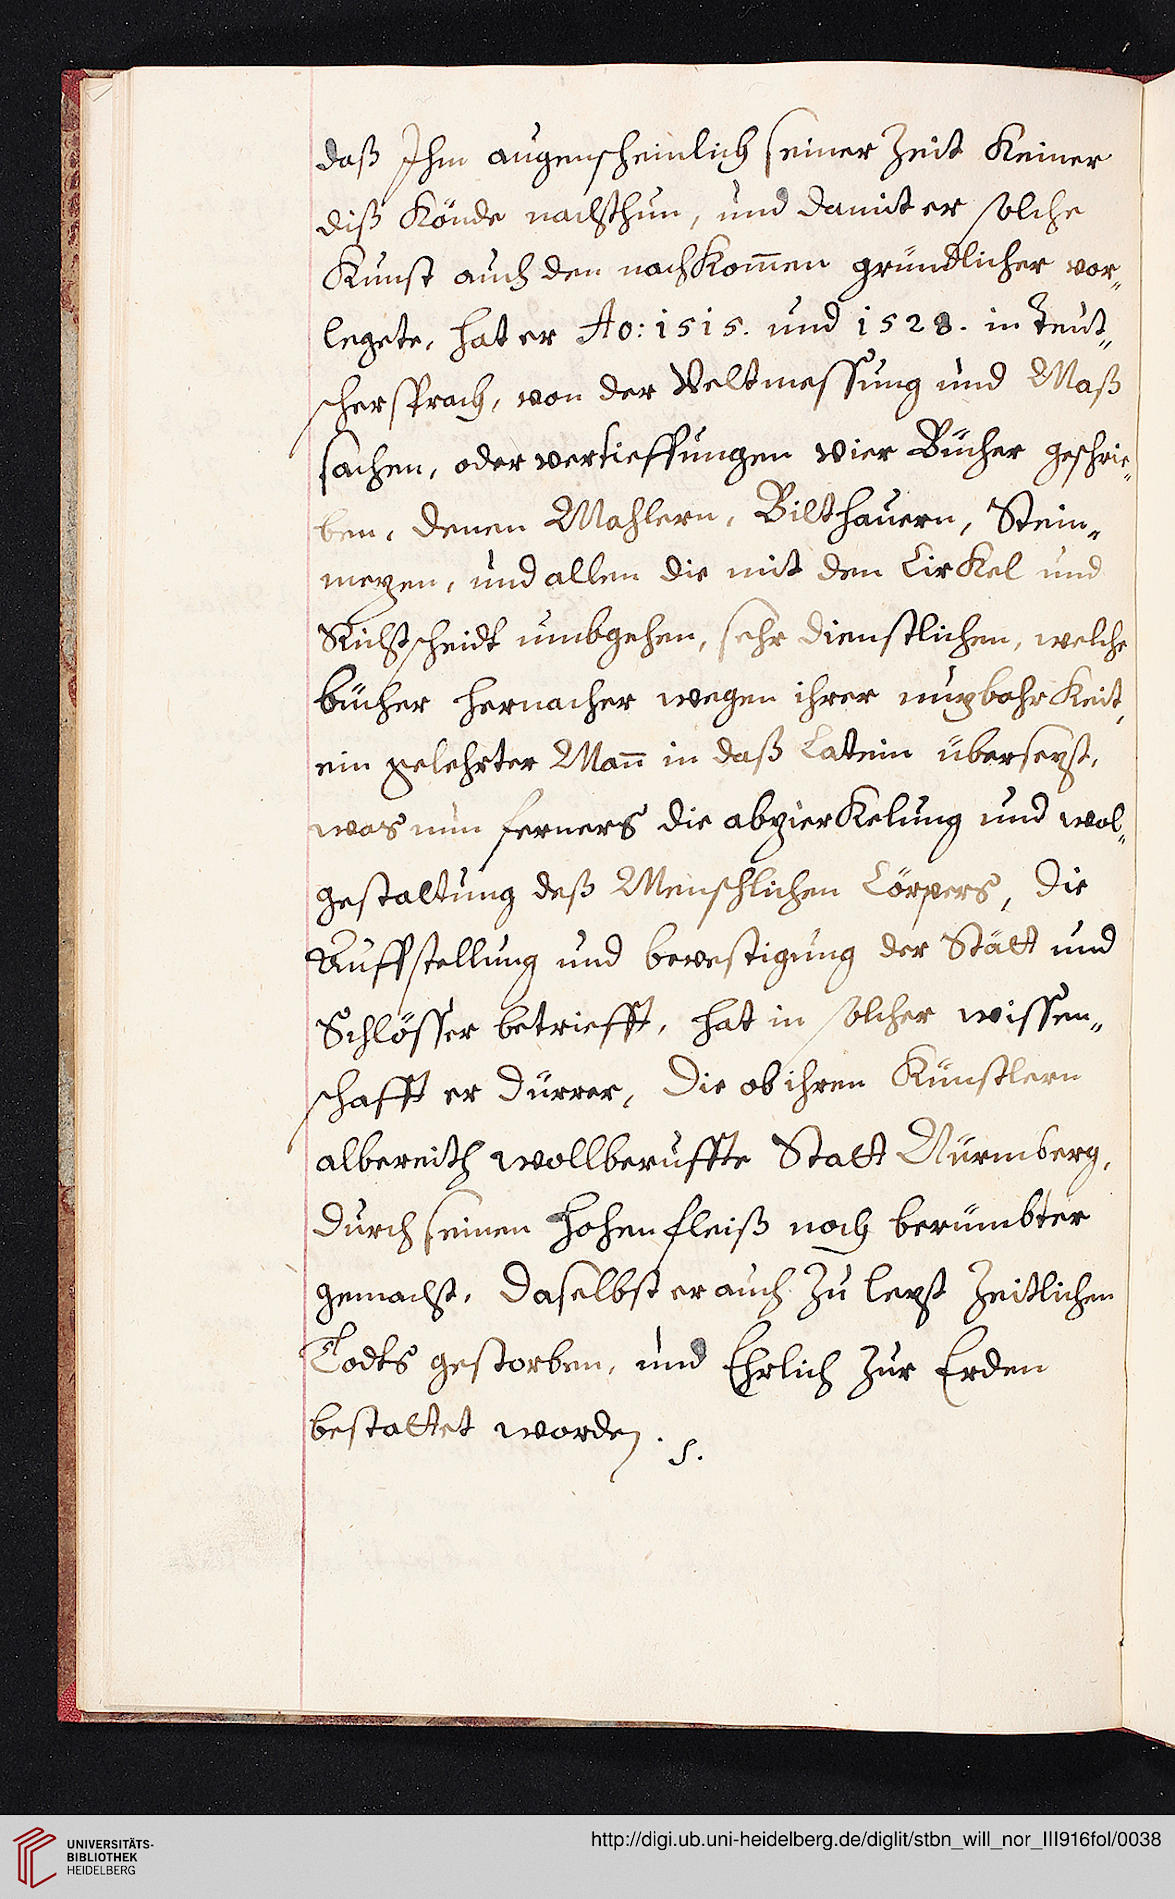 daß Ihm augenscheinlich seiner Zeit Keiner
diß Könde nachthun, und damit er solche
Kunst auch den nachKom̄en gründlicher vor„
legete, hat er Ao: 1515. und 1528. in Teut„
scher sprach, von der Veltmessung und Maß
sachen, oder vertieffungen vier Bücher geschrie„
ben, denen Mahlern, Bilthauern, Stein„
mezen, und allen die mit den CirKel und
Richtscheidt umbgehen, sehr dienstlichen, welche
bücher hernacher wegen ihrer nuzbahrKeit,
ein gelehrter Man̄ in daß Latein übersezt,
was nun ferners die abzierKelung und wol„
gestaltung deß Menschlichen Cörpers, die
Auffstellung und bevestigung der Stätt und
Schlösser betriefft, hat in solcher wissen„
schafft er Dürrer, die ob ihren Künstlern
albereith wollberuffte Statt Nürmberg,
durch seinen hohen fleiß noch berümbter
gemacht, daselbst er auch zu lezt Zeitlichen
Todts gestorben, und Ehrlich zur Erden
bestattet worden. S.
UNIVERSITÄTS-
BIBLIOTHEK
HEIDELBERG
http://digi.ub.uni-heidelberg.de/diglit/stbn_will_nor_III916fol/0038